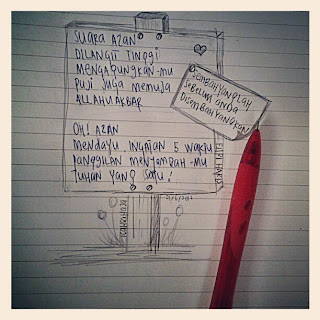 SUARA AZAN
DILANGIT TINGGI
MENGAGUNGKAN-MU
PUJI JUGA MEMUJA
ALLAHUAKBAR
OH! AZAN
MENDAYU INGATAN 5 WAKTU
PANGGILAN MENYEMBAH-MU
TUHAN YANG SATU!
SEMBAHYANGLAH
SEBELUM ANDA
DISEMBAHYANGKAN